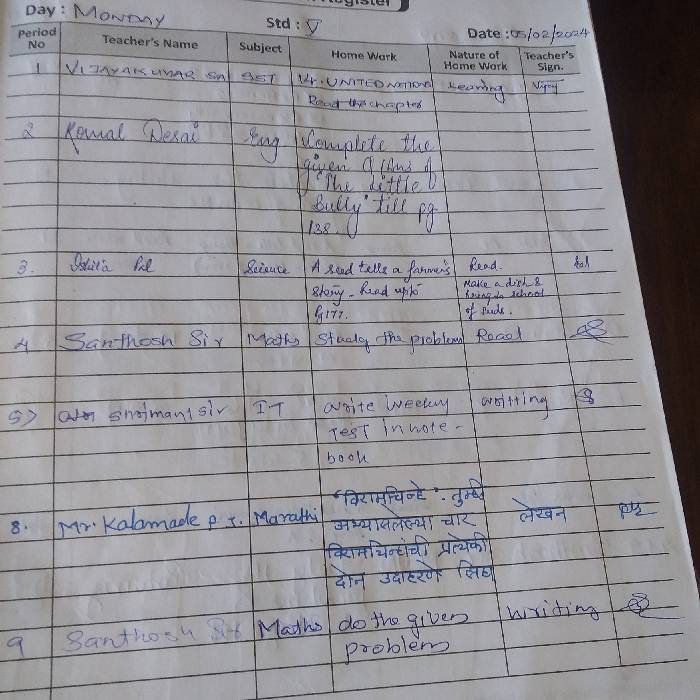 Register
Day : MONDAY Std : V Date : 05/02/2024
Period No Teacher's Name Subject Home Work Nature of Home Work Teacher's Sign.
1 VIJAYAKUMAR SST 14. UNITED NATIONS Learning
Read the chapter
2 Komal Desai Eng Complete the
given Q/Ans of
"The Little
Bully" till pg
138.
3. Science A seed tells a farmer's Read.
story. Read upto Make a dish & bring to school
Pg 177. of seeds.
4 Santhosh Sir Maths Study the problems Read
5) shrimant sir IT write weekly writting
Test in note-
book
8. Mr. Kalamade P. T. Marathi "विरामचिन्हे". तुम्ही लेखन
अभ्यासलेल्या चार
विरामचिन्हांची प्रत्येकी
दोन उदाहरणे लिहा
9 Santhosh Sir Maths do the given writing
problem